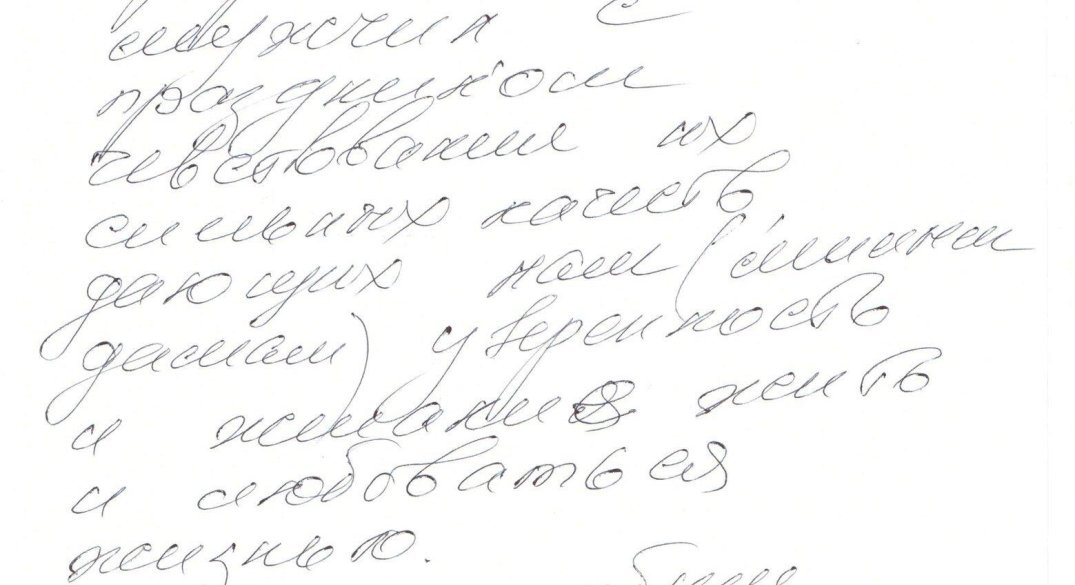 мужчин с
праздником
чевствования их
сильных качеств
дающих нам (милым
дамам) уверенность
и желание жить
и любоваться
жизнью.